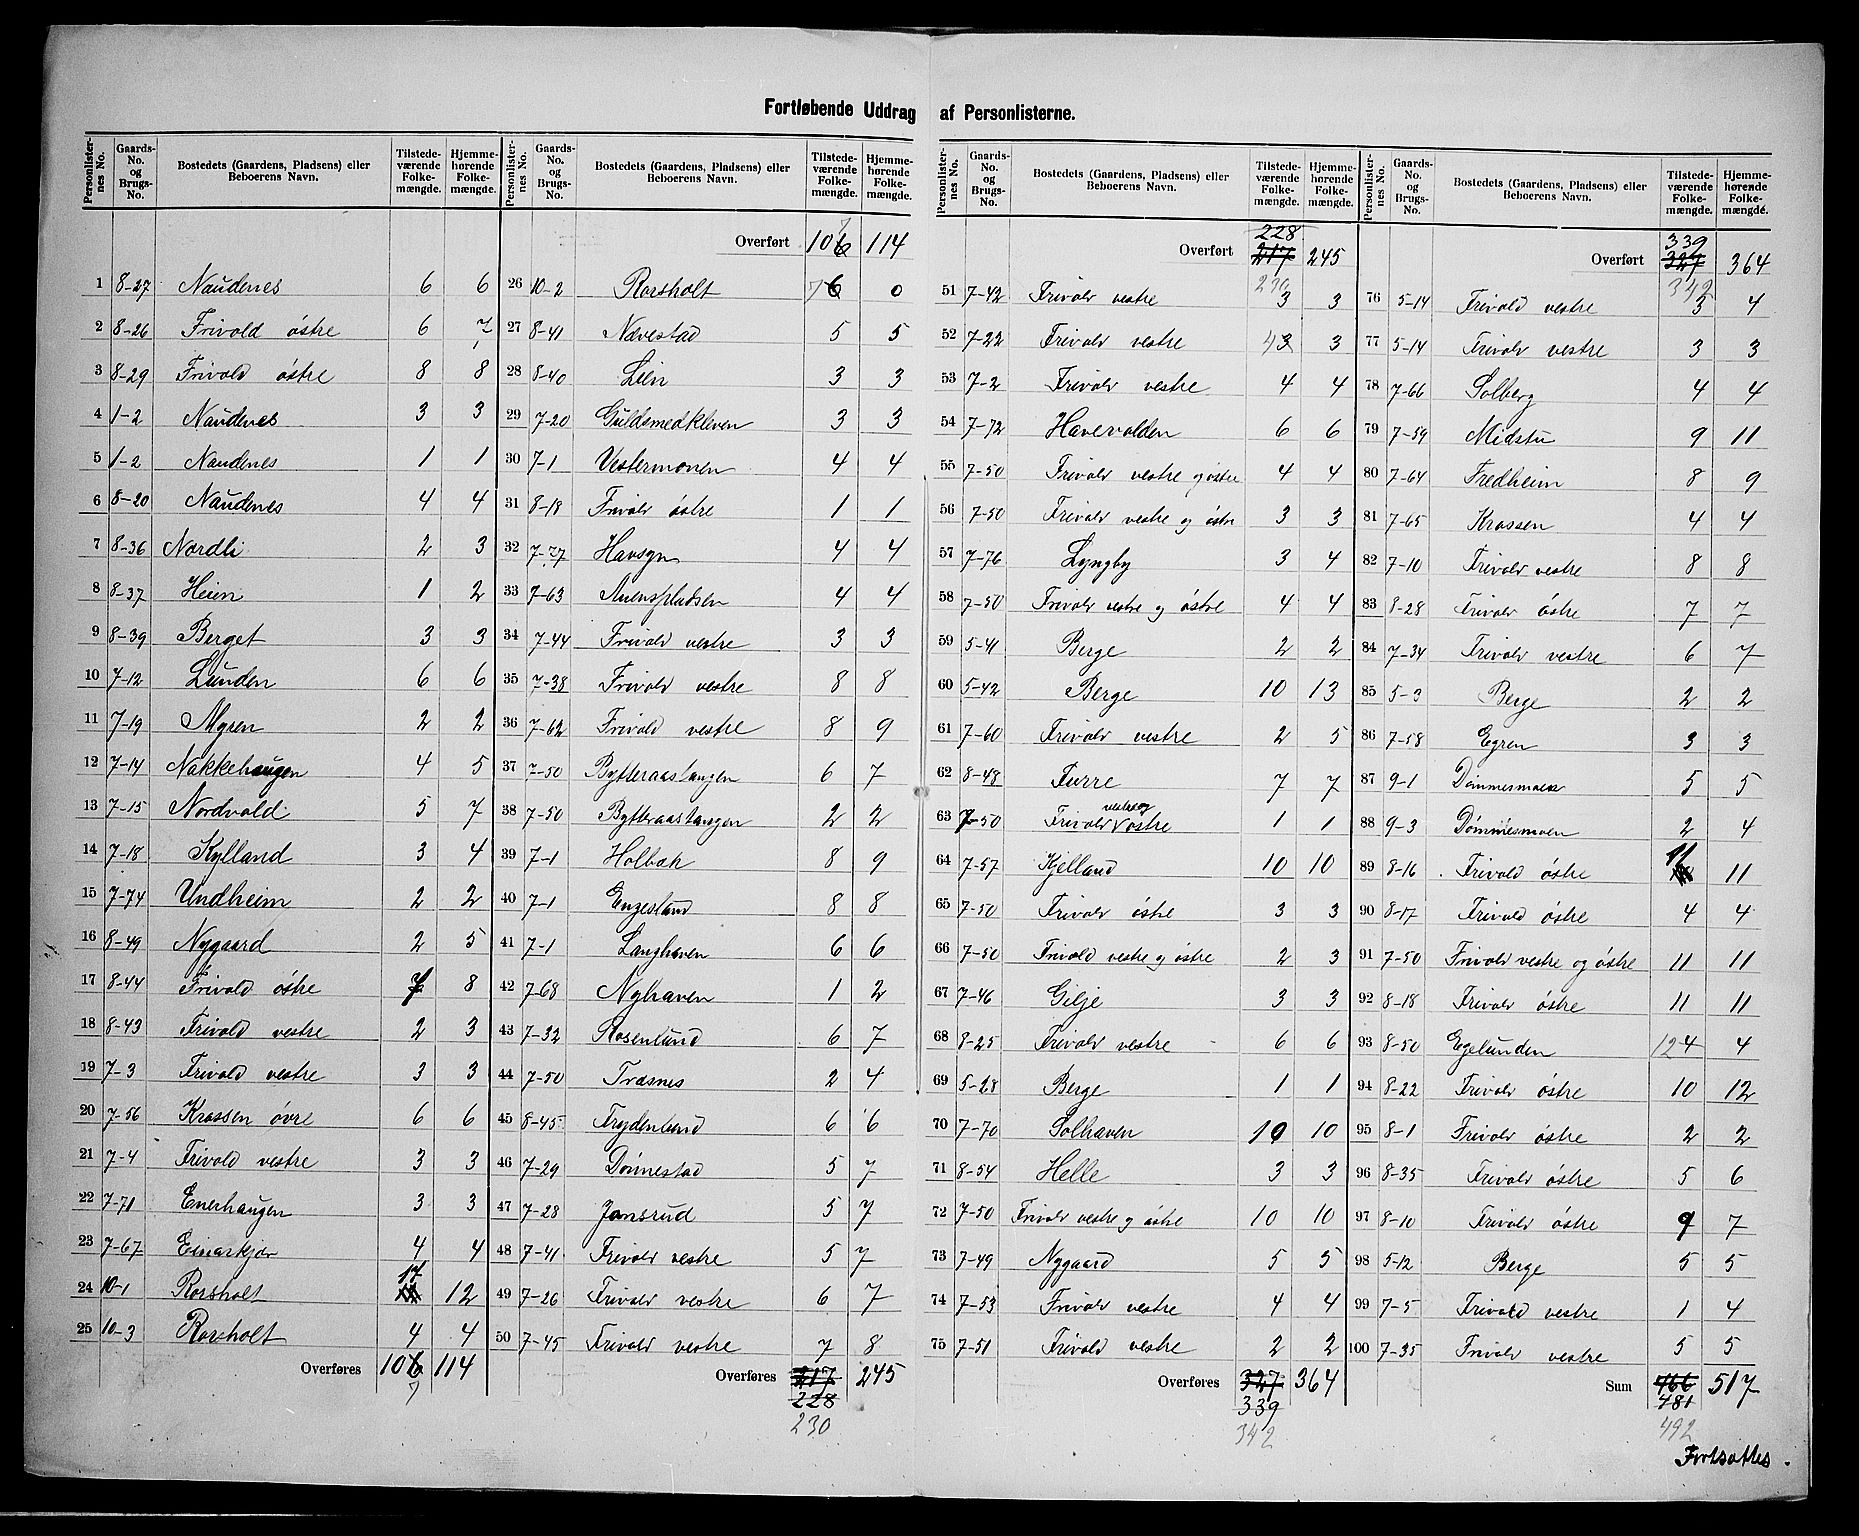 Fortløbende Uddrag af Personlisterne.
Personlister-nes No. Gaards-No. og Brugs-No. Bostedets (Gaardens, Pladsens) eller Beboerens Navn. Tilstede-værende Folke-mængde. Hjemme-hørende Folke-mængde.
1 8-27 Naudenes 6 6
2 8-26 Frivold østre 6 7
3 8-29 Frivold østre 8 8
4 1-2 Naudenes 3 3
5 1-2 Naudenes 1 1
6 8-20 Naudenes 4 4
7 8-36 Nordli 2 3
8 8-37 Heien 1 2
9 8-39 Berget 3 3
10 7-12 Lunden 6 6
11 7-19 Myren 2 2
12 7-14 Nakkehaugen 4 5
13 7-15 Nordvold 5 7
14 7-18 Kylland 3 4
15 7-74 Undheim 2 2
16 8-49 Nygaard 2 5
17 8-44 Frivold østre 7 8
18 8-43 Frivold vestre 2 3
19 7-3 Frivold vestre 3 3
20 7-56 Krossen øvre 6 6
21 7-4 Frivold vestre 3 3
22 7-71 Enerhaugen 3 3
23 7-67 Einaskjær 4 4
24 10-1 Rorsholt 17 12
25 10-3 Rorsholt 4 4
Overføres 106 114
7
Personlister-nes No. Gaards-No. og Brugs-No. Bostedets (Gaardens, Pladsens) eller Beboerens Navn. Tilstede-værende Folke-mængde. Hjemme-hørende Folke-mængde.
7
Overført 106 114
26 10-2 Rorsholt 76 0
27 8-41 Nævestad 5 5
28 8-40 Lien 3 3
29 7-20 Guldsmedkleven 3 3
30 7-1 Vestermoen 4 4
31 8-18 Frivold østre 1 1
32 7-77 Havsyn 4 4
33 7-63 Auenspladsen 4 4
34 7-44 Frivold vestre 3 3
35 7-38 Frivold vestre 8 8
36 7-62 Frivold vestre 8 9
37 7-50 Bytteraastangen 6 7
38 7-50 Bytteraastangen 2 2
39 7-1 Holbæk 8 9
40 7-1 Engesland 8 8
41 7-1 Langhaven 6 6
42 7-68 Nyhaven 1 2
43 7-32 Rosenlund 6 7
44 7-50 Træsnes 2 4
45 8-45 Frydenlund 6 6
46 7-29 Dønnestad 5 7
47 7-28 Jansrud 5 7
48 7-41 Frivold vestre 5 7
49 7-26 Frivold vestre 6 7
50 7-45 Frivold vestre 7 8
Overføres 217 245
228
230
Personlister-nes No. Gaards-No. og Brugs-No. Bostedets (Gaardens, Pladsens) eller Beboerens Navn. Tilstede-værende Folke-mængde. Hjemme-hørende Folke-mængde.
228
Overført 217 245
230
51 7-42 Frivold vestre 3 3
52 7-22 Frivold vestre 43 3
53 7-2 Frivold vestre 4 4
54 7-72 Havevolden 6 6
55 7-50 Frivold vestre og østre 4 4
56 7-50 Frivold vestre og østre 3 3
57 7-76 Lyngby 3 4
58 7-50 Frivold vestre og østre 4 4
59 5-41 Berge 2 2
60 5-42 Berge 10 13
61 7-60 Frivold vestre 2 5
62 8-48 Furre 7 7
63 7-50 Frivold vestre og østre 1 1
64 7-57 Kjelland 10 10
65 7-50 Frivold østre 3 3
66 7-50 Frivold vestre og østre 2 3
67 7-46 Gilje 3 3
68 8-25 Frivold vestre 6 6
69 5-28 Berge 1 1
70 7-70 Solhaven 10 10
71 8-54 Helle 3 3
72 7-50 Frivold vestre og østre 10 10
73 7-49 Nygaard 5 5
74 7-53 Frivold vestre 4 4
75 7-51 Frivold vestre 2 2
Overføres 327 364
339
342
Personlister-nes No. Gaards-No. og Brugs-No. Bostedets (Gaardens, Pladsens) eller Beboerens Navn. Tilstede-værende Folke-mængde. Hjemme-hørende Folke-mængde.
339
Overført 327 364
342
76 5-14 Frivold vestre 3 4
77 5-14 Frivold vestre 3 3
78 7-66 Solberg 4 4
79 7-59 Midstu 9 11
80 7-64 Fredheim 8 9
81 7-65 Krossen 4 4
82 7-10 Frivold vestre 8 8
83 8-28 Frivold østre 7 7
84 7-34 Frivold vestre 6 7
85 5-3 Berge 2 2
86 7-58 Egren 3 3
87 9-1 Dømmesmoen 5 5
88 9-3 Dømmesmoen 2 4
89 8-16 Frivold østre 11 11
90 8-17 Frivold østre 4 4
91 7-50 Frivold vestre og østre 11 11
92 8-18 Frivold østre 11 11
93 8-50 Egelunden 124 4
94 8-22 Frivold østre 10 12
95 8-1 Frivold østre 2 2
96 8-35 Frivold østre 5 6
97 8-10 Frivold østre 9 7
98 5-12 Berge 5 5
99 7-5 Frivold vestre 1 4
100 7-35 Frivold vestre 5 5
Sum 466 517
481
492
Fortsættes.